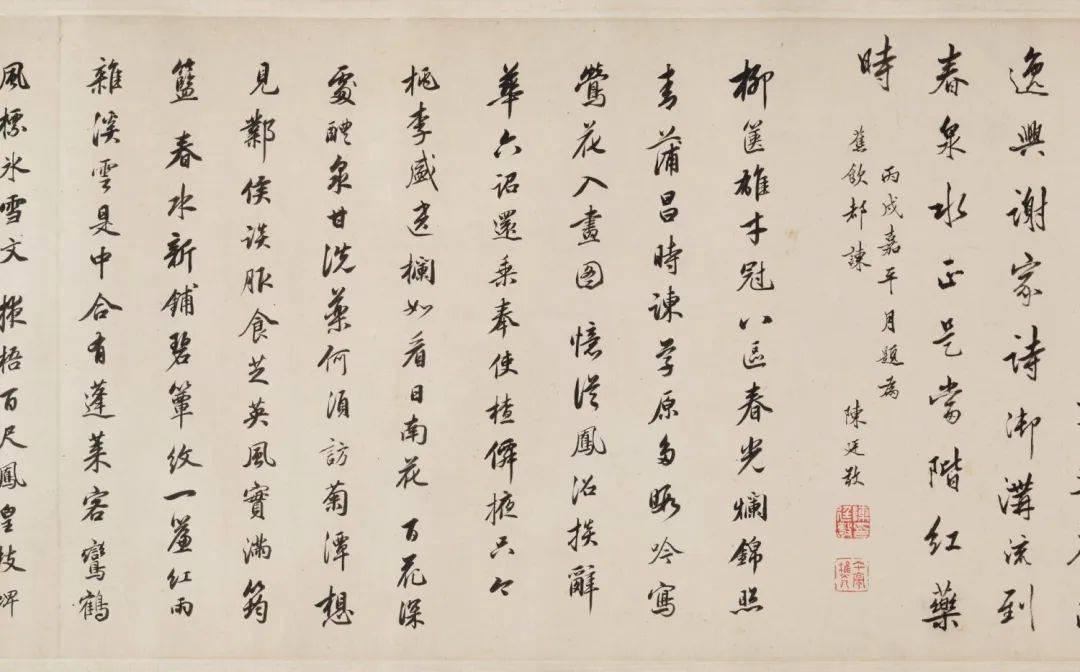 逸興謝家詩御溝流到
春泉水正是當階紅藥
時
丙戌嘉平月題為
蕉飲都諫
陳廷敬
柳篋雄才冠八區春光爛錦照
青蒲昌時諫草原多暇吟寫
鶯花入畫圖 憶從鳳沼掞辭
華六詔還乘奉使楂僻掖只今
桃李盛遶欄如看日南花 百花深
處醴泉甘洗藥何須訪菊潭想
見鄴侯談服食芝英風實滿筠
籃 春水新鋪碧簟紋一簾紅雨
雜溪雲是中合有蓬萊客鸞鶴
風標冰雪文 掖梧百尺鳳皇枝